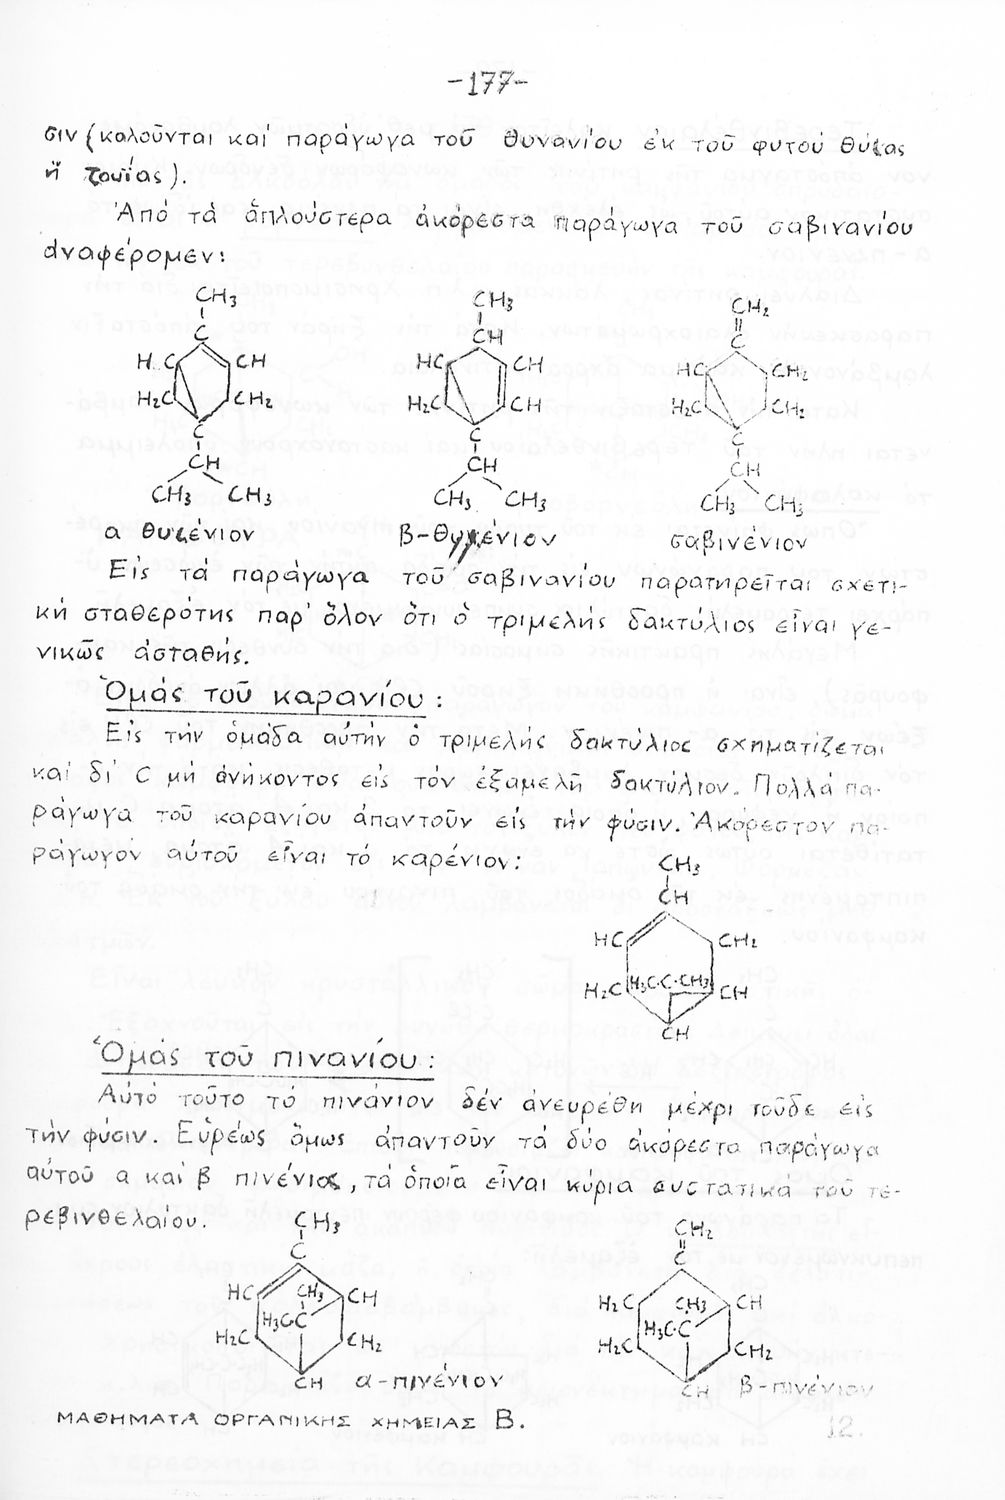 -177-
σιν (καλοῦνται καί παράγωγα τοῦ θυνανίου ἐκ τοῦ φυτοῦ θύζας
ἤ τουΐας).
Ἀπό τά ἁπλούστερα ἀκόρεστα παράγωγα τοῦ σαβινανίου
ἀναφέρομεν:
CH3 CH3 CH2
C CH C
HC CH HC CH HC CH2
H2C CH2 H2C CH H2C CH2
C C C
CH CH CH
CH3 CH3 CH3 CH3 CH3 CH3
α θυζένιον β- σαβινένιον
Εἰς τά παράγωγα τοῦ σαβινανίου παρατηρεῖται σχετι-
κή σταθερότης παρ' ὅλον ὅτι ὁ τριμελής δακτύλιος εἶναι γε-
νικῶς ἀσταθής.
Ὁμάς τοῦ καρανίου:
Εἰς τήν ὁμάδα αὐτήν ὁ τριμελής δακτύλιος σχηματίζεται
καί δι' C μή ἀνήκοντος εἰς τόν ἑξαμελῆ δακτύλιον. Πολλά πα-
ράγωγα τοῦ καρανίου ἀπαντοῦν εἰς τήν φύσιν. Ἀκόρεστον πα-
ράγωγον αὐτοῦ εἶναι τό καρένιον:
CH3
CH
HC CH2
H2C H3C-C-CH3 CH
CH
Ὁμάς τοῦ πινανίου:
Αὐτό τοῦτο τό πινάνιον δέν ἀνευρέθη μέχρι τοῦδε εἰς
τήν φύσιν. Εὑρέως ὅμως ἀπαντοῦν τά δύο ἀκόρεστα παράγωγα
αὐτοῦ α καί β πινένιος, τά ὁποῖα εἶναι κύρια συστατικά τοῦ τε-
ρεβινθελαίου.
CH3 CH2
C C
HC CH3 CH H2C CH3 CH
H3C-C H3C-C
H2C CH2 H2C CH2
CH α-πινένιον CH β-πινένιον
ΜΑΘΗΜΑΤΑ ΟΡΓΑΝΙΚΗΣ ΧΗΜΕΙΑΣ Β. 12.